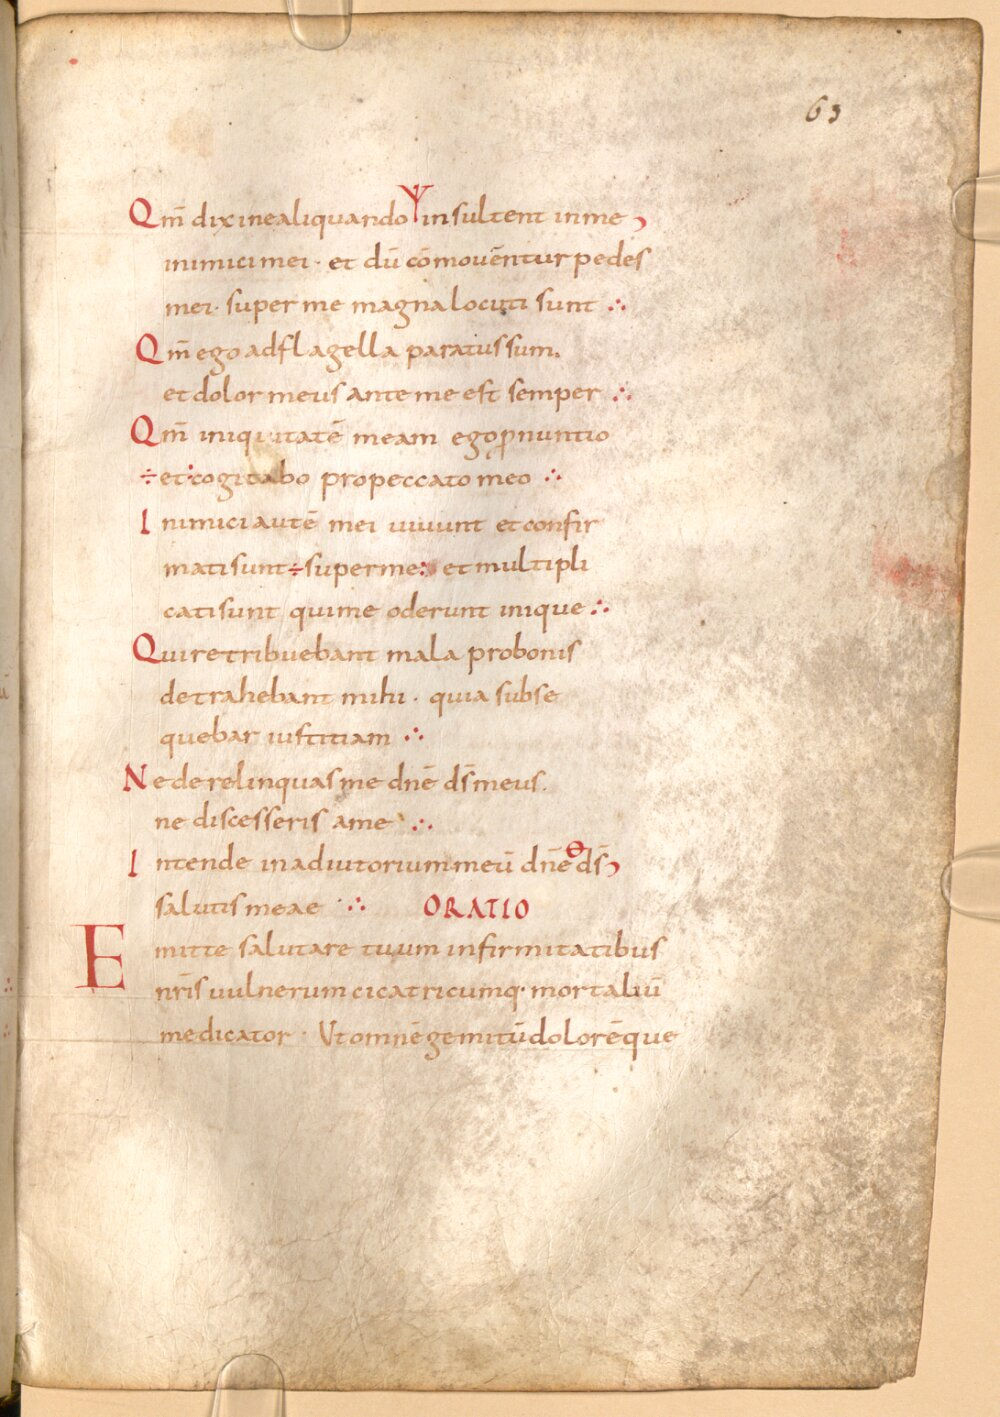 63
Qm̄ dixi nealiquando Ꮙ insultent in me
inimici mei · et dū cōmovēntur pedes
mei · super me magna locuti sunt ∴
Qm̄ ego ad flagella paratus sum.
et dolor meus ante me est semper ∴
Qm̄ iniquitatē meam ego ꝓnuntio
÷ et : cogitabo pro peccato meo ∴
Inimici autē mei vivunt et confir
mati sunt ÷ super me : et multipli
cati sunt qui me oderunt inique ∴
Qui retribuebant mala pro bonis
detrahebant mihi · quia subse
quebar iustitiam ∴
Ne derelinquas me dn̄e ds̄ meus.
ne discesseris a me ∴
Intende in adiutorium meū dn̄e ds̄
salutis meae ∴ ORATIO
Emitte salutare tuum infirmitatibus
nr̄is vulnerum cicatricumq· mortaliū
medicator · Ut omnē gemitū dolorēque